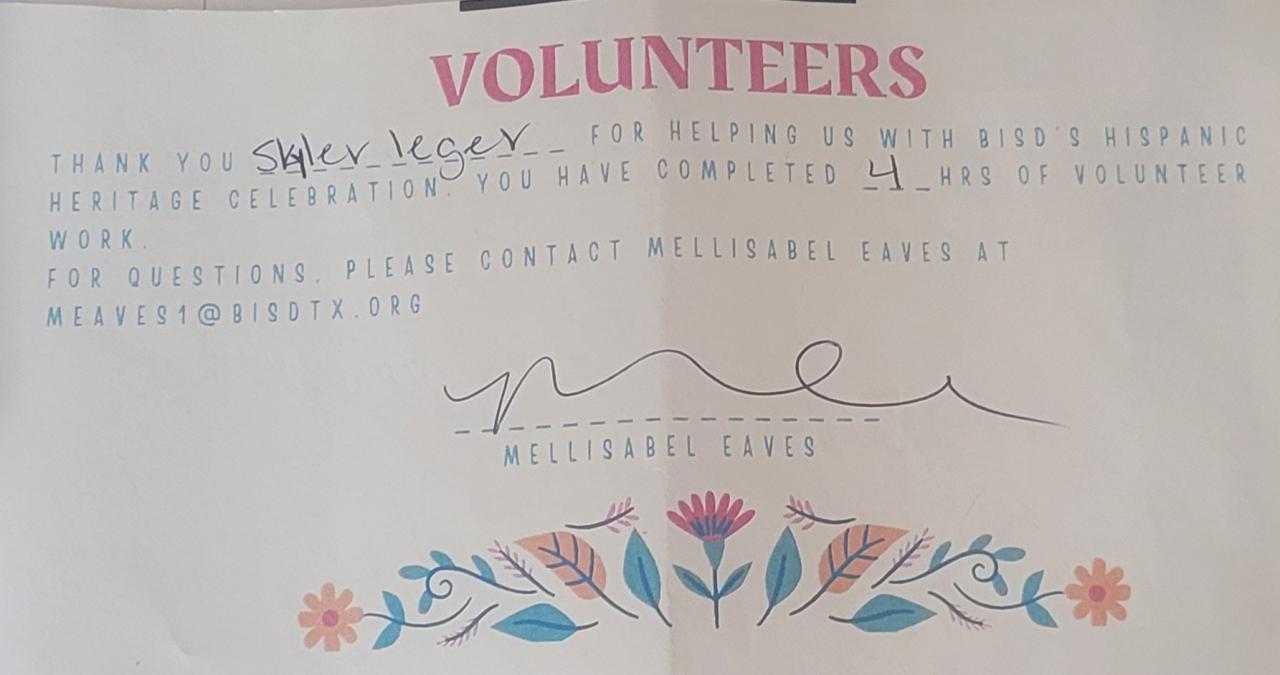 VOLUNTEERS
THANK YOU Skyler leger FOR HELPING US WITH BISD'S HISPANIC
HERITAGE CELEBRATION. YOU HAVE COMPLETED 4 HRS OF VOLUNTEER
WORK.
FOR QUESTIONS, PLEASE CONTACT MELLISABEL EAVES AT
MEAVES1@BISDTX.ORG
MELLISABEL EAVES